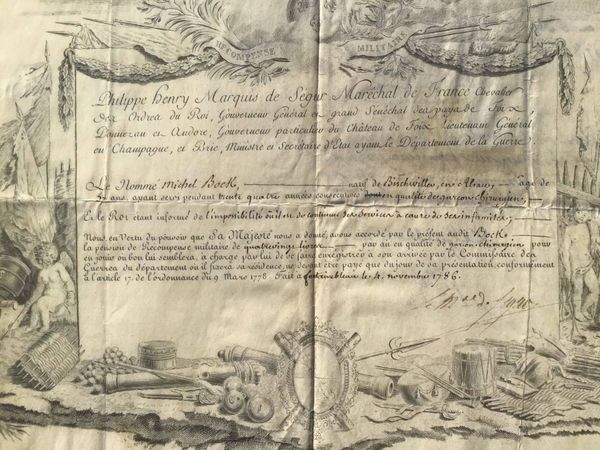 RECOMPENSE MILITAIRE
Philippe Henry Marquis de Segur Maréchal de France Chevalier
des Ordres du Roi, Gouverneur Général et grand Sénéchal des pays de Foix
Donnezan et Andore, Gouverneur particulier du Château de Foix Lieutenant Général
en Champagne, et Brie, Ministre et Secrétaire d'Etat ayant le Département de la Guerre.
Le Nommé Michel Bock, natif de Bischwiller, en Alsace, âgé de
ans, ayant servi pendant trente quatre années consécutives en qualité de garçon chirurgien,
Et le Roi étant informé de l'impossibilité où il est de continuer ses services à cause de ses infirmités,
Nous, en Vertu du pouvoir que Sa Majesté nous a donné, avons accordé par le présent audit Bock
la pension de Récompense militaire de quatrevingt livres par an en qualité de garçon chirurgien pour
en jouir où bon lui semblera, à charge par lui de se faire enrégistrer à son arrivée par le Commissaire des
Guerres du département où il fixera sa résidence, ne devant être payé que du jour de sa présentation, conformément
à l'article 17. de l'ordonnance du 9 Mars 1778. Fait à fontainebleau le 4. novembre 1786.